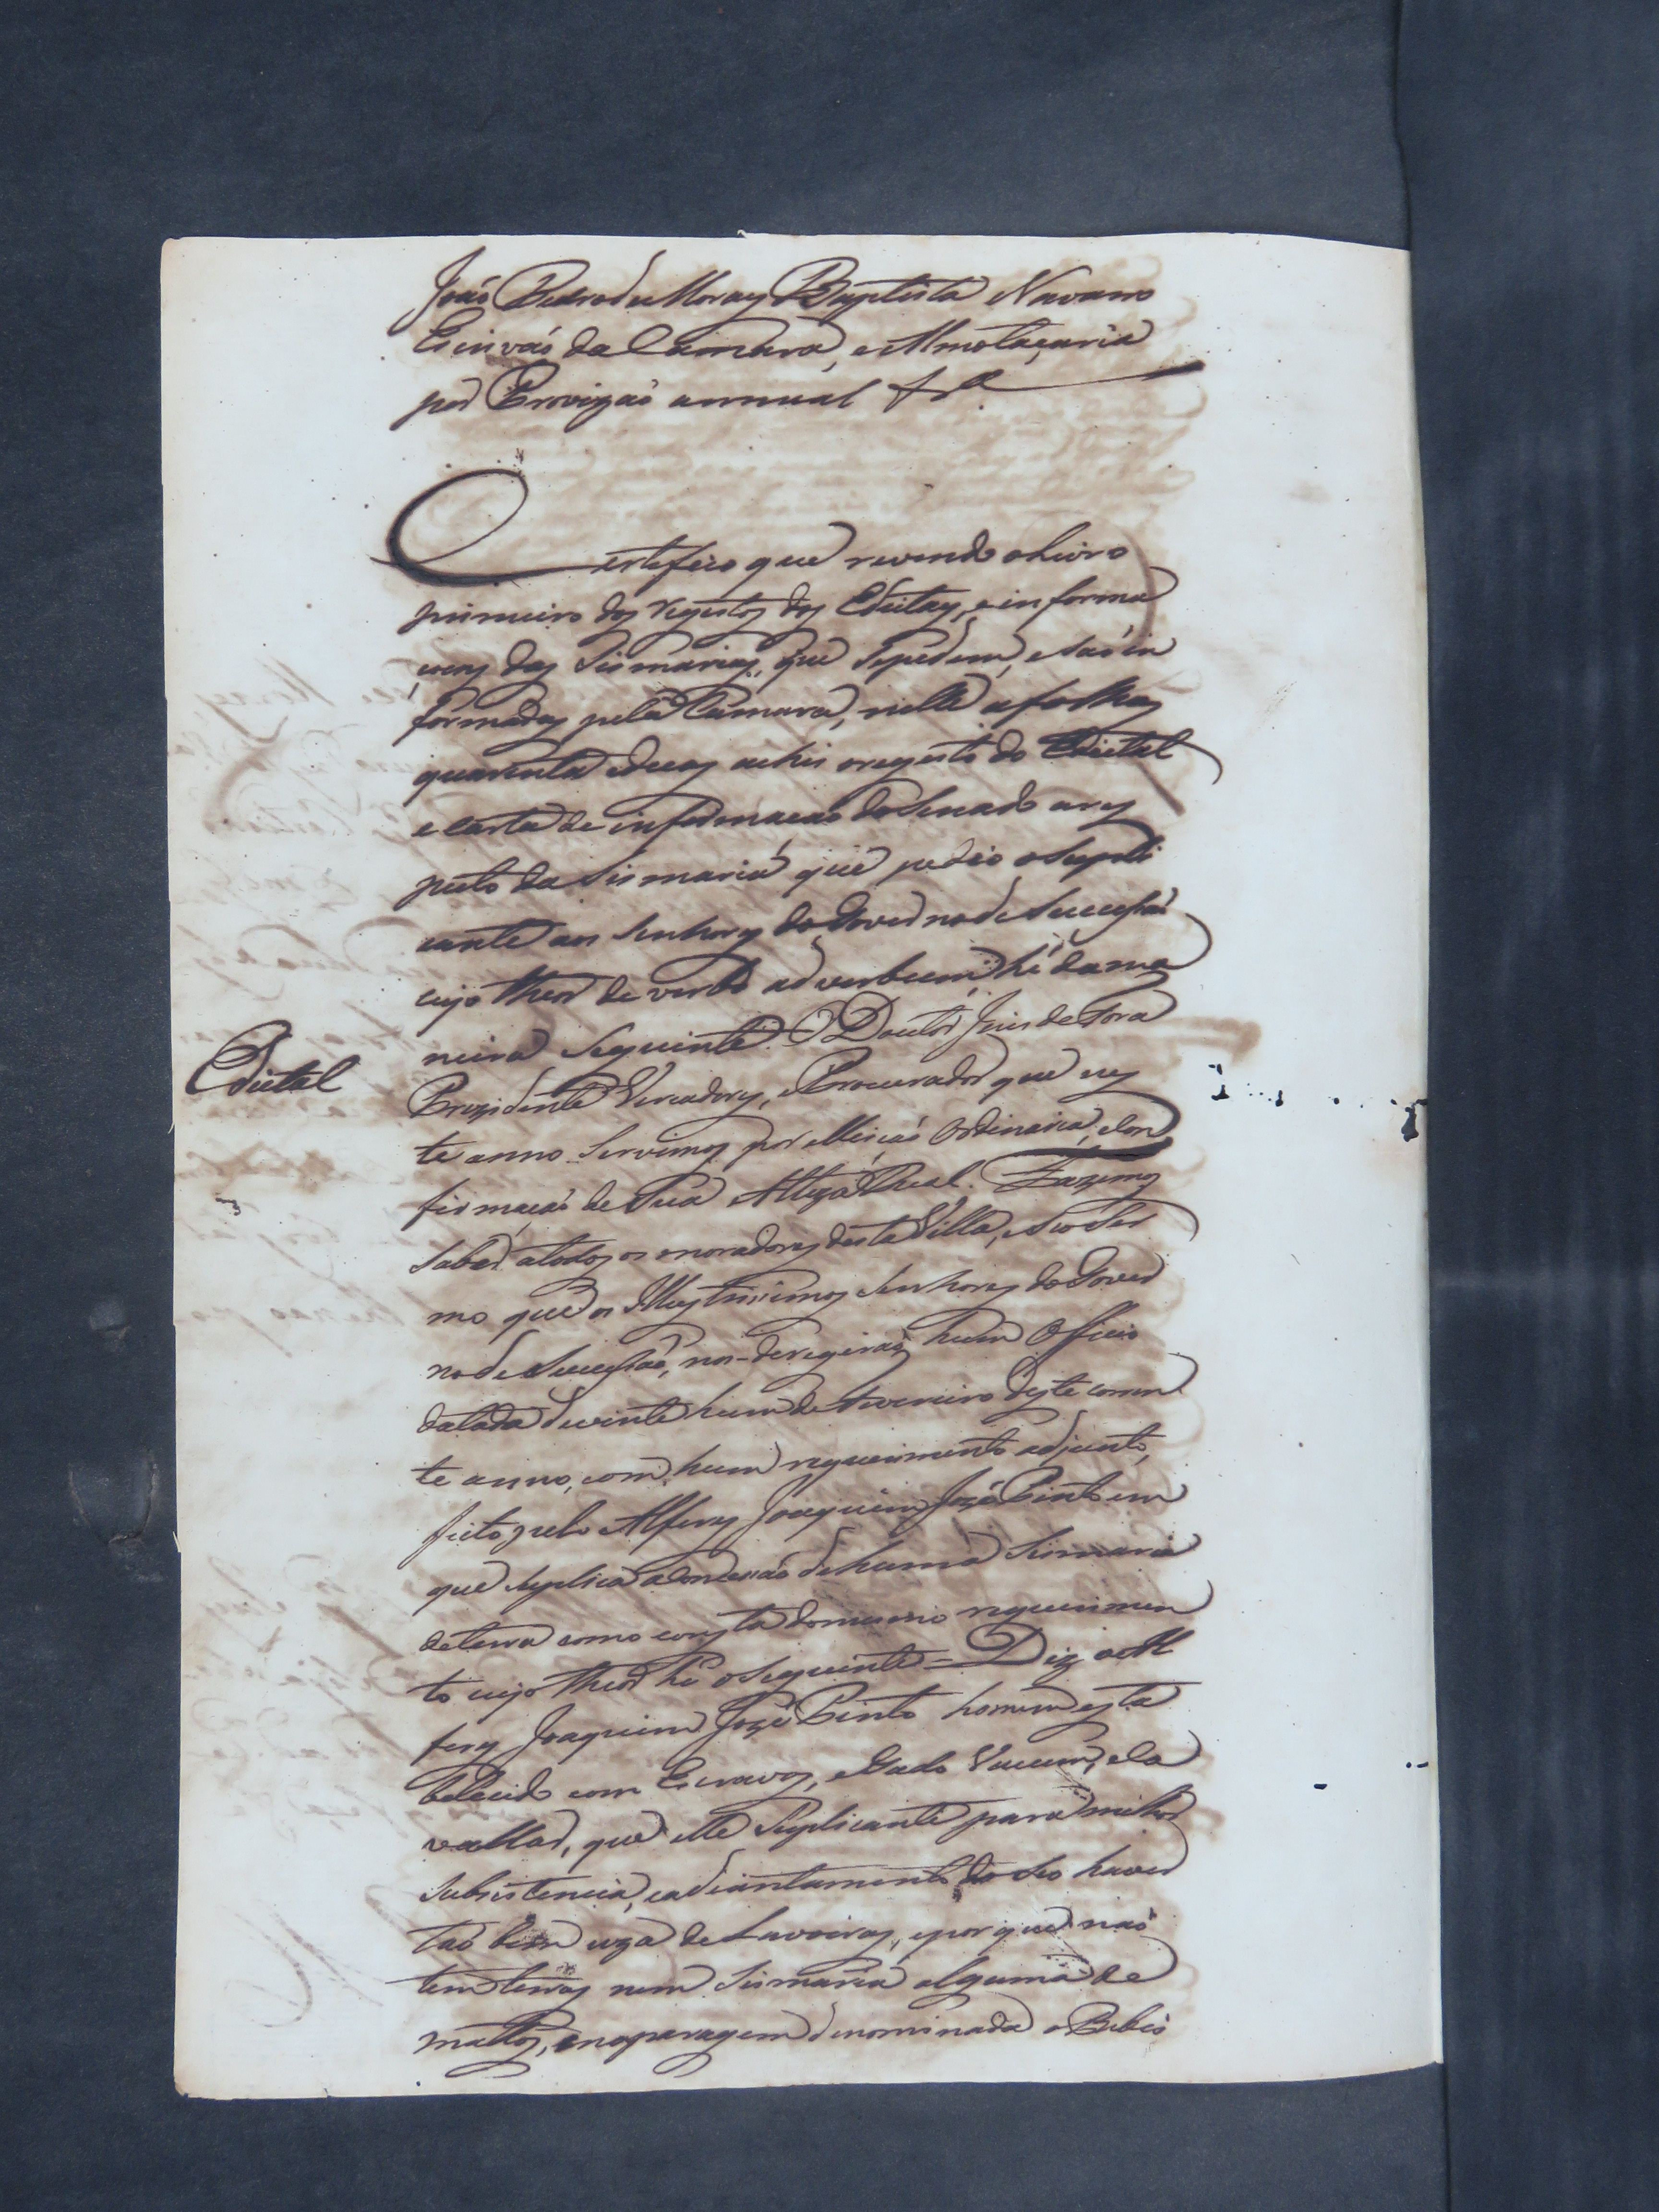 João Pedro de Moraes Baptista Navarro
Escrivaõ da Camara, e Almotaçaria
por Provizaõ annual &ª
Certefico que revendo o Livro
primeiro dos registos dos Edictaes, e informa
çoens das Sismarias, que se pedem, e saõ in
formadas pela Camara, nelle a folhas
quarenta e duas achei o registo do Edictal
e carta de informaçaõ do Senado a res
peito da Sismaria que pedio o Supli
cante aos Senhores do Governo de Sucessaõ
cujo theor de verbo ad verbum, hé da ma
neira seguinte. O Doutor Juis de Fora
Edictal
Prezidente Vereadores, e Procurador que nes
te anno servimos por elleiçaõ Ordinaria, e con
firmaçaõ de Sua Alteza Real. Fazemos
saber a todos os moradores desta Villa, e seo Ter
mo que os Illustrissimos Senhores do Gover
no de Sucessaõ, nos deregiraõ hum Officio
datado de vinte hum de Fevereiro deste corren
te anno, com hum requerimento adjunto,
feito pelo Alferes Joaquim José Pinto em
que suplica a Concessaõ de huma Sismaria
de terra como consta do mesmo requerimen
to cujo theor hé o seguinte = Diz o Al
feres Joaquim José Pinto homem esta
belecido com Escravos, e Gado Vacum, e Ca
vallar, que elle Suplicante para milhor
subsistencia, e adiantamento do seo haver
taõ bem uza de Lavoiras, e por que naõ
tem terras nem Sismaria alguma de
mattos, e na paragem denominada o